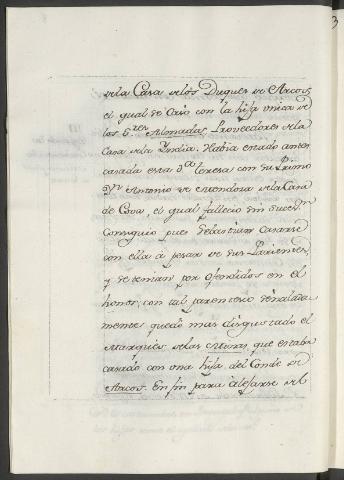 de la Casa de los Duques de Arcos,
el qual se Casó con la hija unica de
los S.res Monadas, Proveedores de la
Casa de la India. Habia estado antes
casada esta D.a Teresa con su Primo
D.n Antonio de Mendoza de la Casa
de Cova, el qual fallecio sin suces.n
Conseguio pues Sebastian casarse
con ella à pesar de sus Parientes,
y se tenian por ofendidos en el
honor, con tal parentesco señalada
mente quedó mas disgustado el
Marques de las Navas, que estaba
casado con una hija del Conde de
Arcos. En fin para alejarse del
3